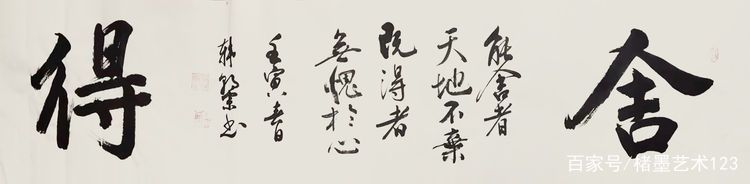 舍
能舍者
天地不棄
既得者
無愧於心
壬寅春
韩
书
得
百家号/楮墨艺术123